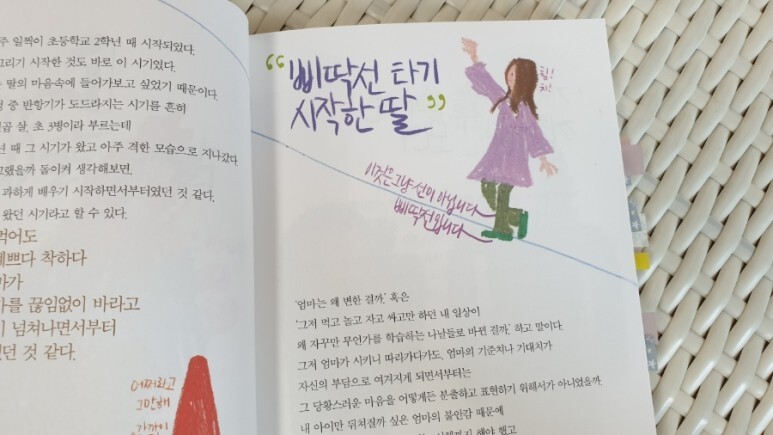 주 일찍이 초등학교 2학년 때 시작되었다.
그리기 시작한 것도 바로 이 시기였다.
딸의 마음속에 들어가보고 싶었기 때문이다.
중 반항기가 도드라지는 시기를 흔히
곱 살, 초 3병이라 부르는데
년 때 그 시기가 왔고 아주 격한 모습으로 지나갔다.
그랬을까 돌이켜 생각해보면,
과하게 배우기 시작하면서부터였던 것 같다.
왔던 시기라고 할 수 있다.
먹어도
예쁘다 착하다
마가
를 끊임없이 바라고
넘쳐나면서부터
던 것 같다.
어쩌라고
그만해
“삐딱선 타기
시작한 딸”
힘!
치!
이것은 그냥 선이 아닙니다
삐딱선입니다
'엄마는 왜 변한 걸까.' 혹은
'그저 먹고 놀고 자고 싸고만 하던 내 일상이
왜 자꾸만 무언가를 학습하는 나날들로 바뀐 걸까.' 하고 말이다.
그저 엄마가 시키니 따라가다가도, 엄마의 기준치나 기대치가
자신의 부담으로 여겨지게 되면서부터는
그 당황스러운 마음을 어떻게든 분출하고 표현하기 위해서가 아니었을까.
내 아이만 뒤처질까 싶은 엄마의 불안감 때문에
해야 했고